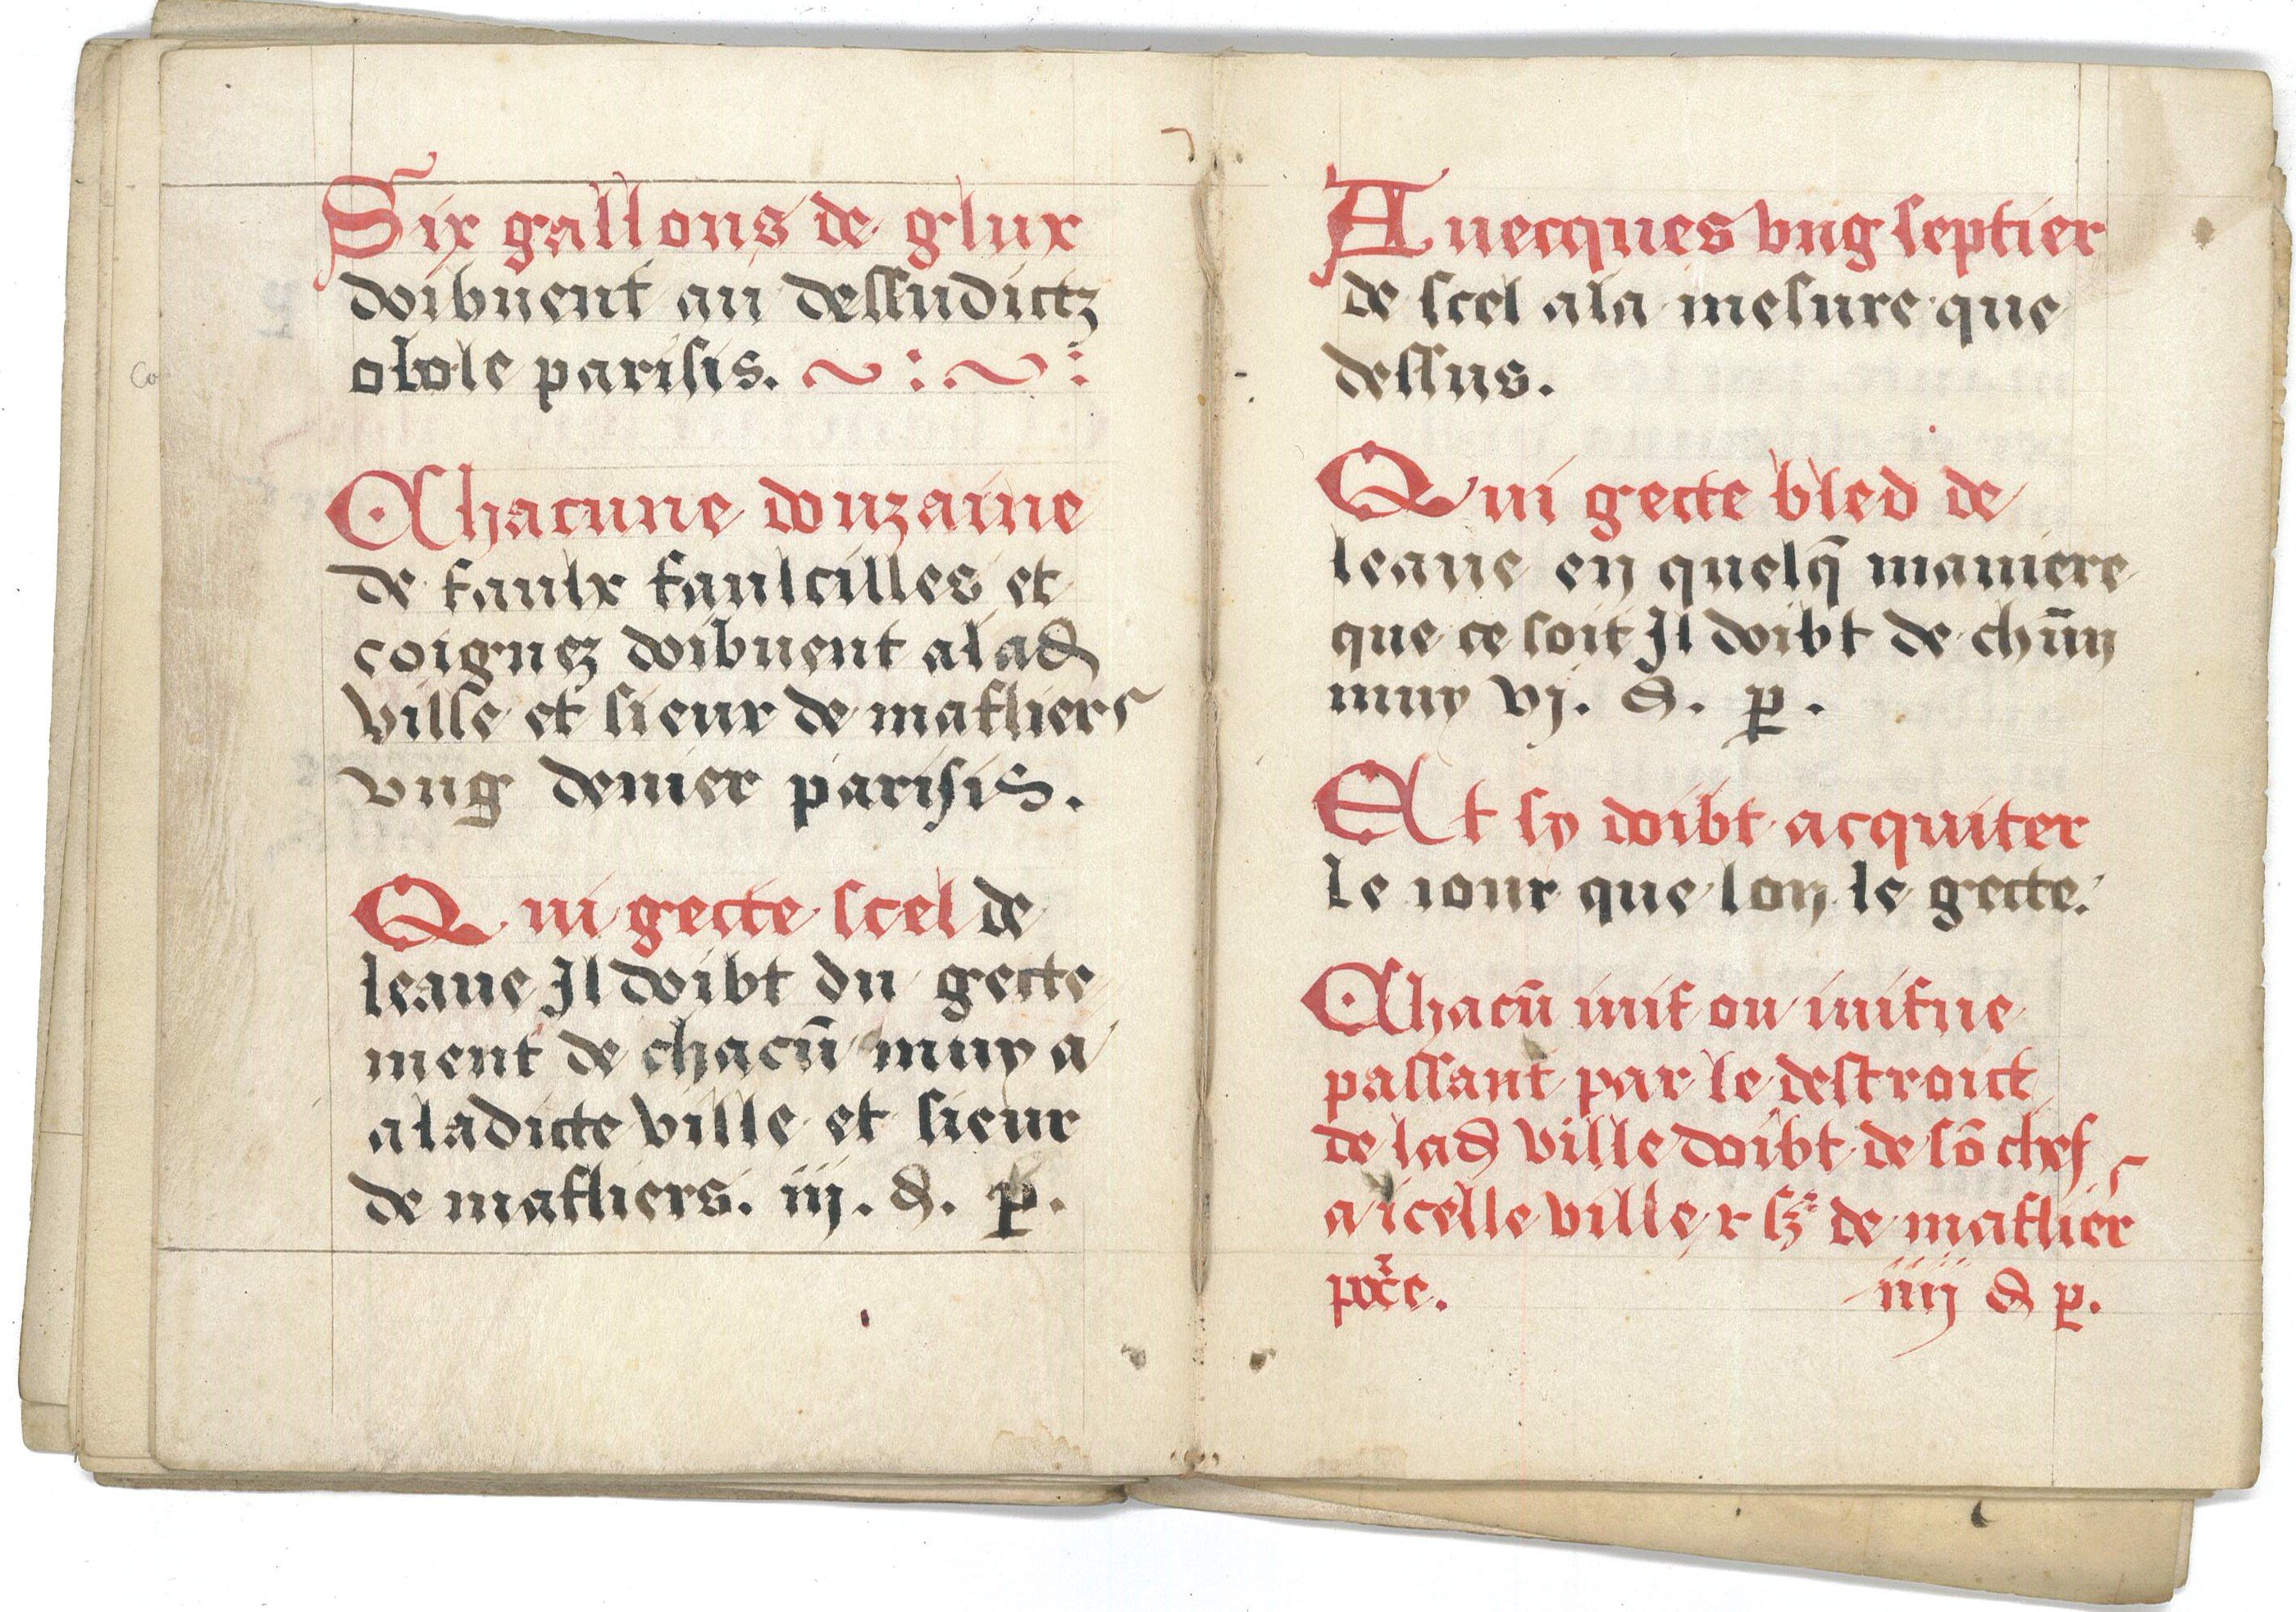 Six gallons de glux
doibuent au dessudictz
obole parisis. ~ : . ~ :
Chacune douzaine
de faulx faulcilles et
coignez doibuent a lad
ville et sieur de mafliers
vng denier parisis.
Qui gecte scel de
leaue Il doibt du gecte
ment de chacū muy a
a ladicte ville et sieur
de mafliers. iij. d. p.
Auecques vng septier
de scel a la mesure que
dessus.
Qui gecte bled de
leaue en quelq̄ maniere
que ce soit Il doibt de chūn
muy vj. d. p.
Et sy doibt acquiter
le iour que lon le gecte.
Chacū iuif ou iuifue
passant par le destroict
de lad ville doibt de sō chef
a icelle ville r sr de mafliers
iiij d p.